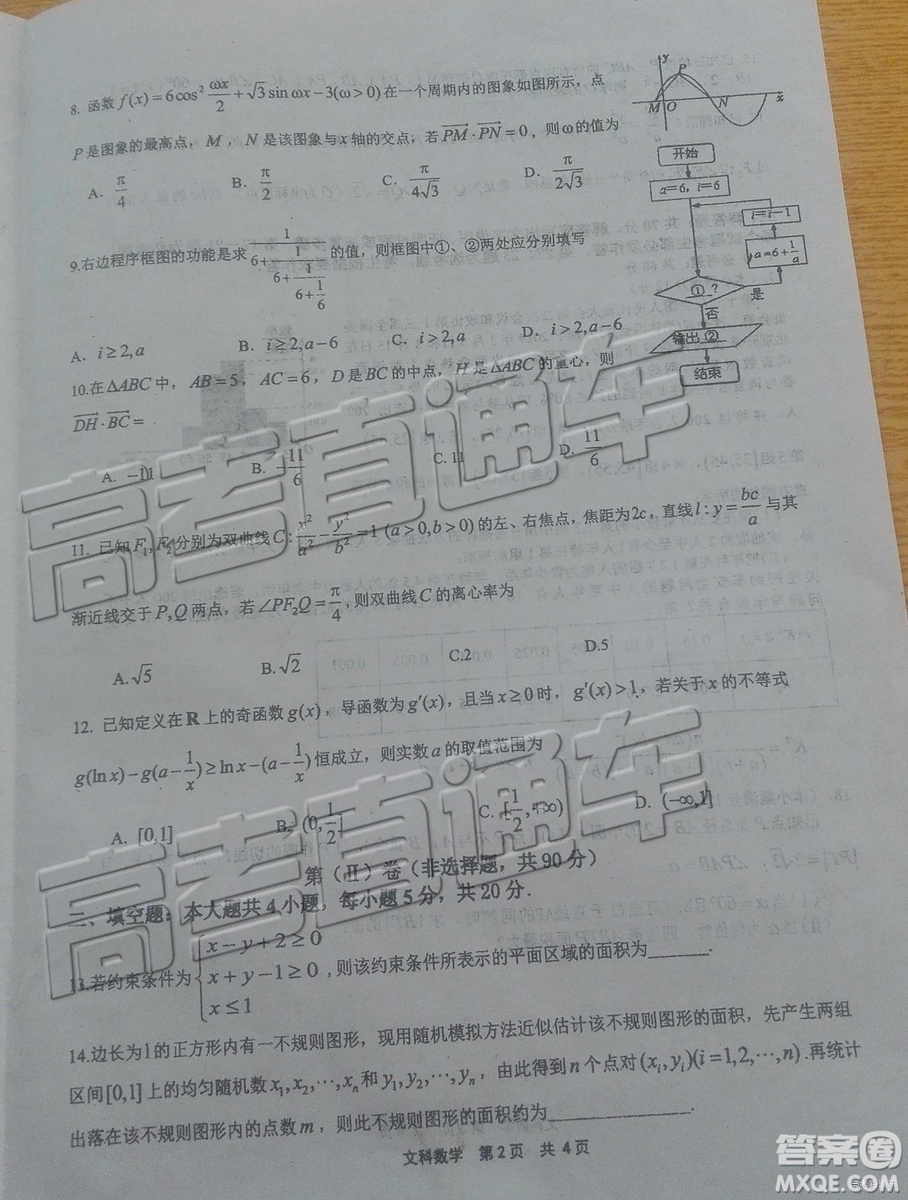 8. 函数 f(x)=6cos²(ωx/2)+√3 sin ωx−3(ω>0) 在一个周期内的图象如图所示，点
P 是图象的最高点，M，N 是该图象与 x 轴的交点；若 PM·PN=0，则 ω 的值为
A. π/4 B. π/2 C. π/(4√3) D. π/(2√3)
y
P
M O N x
开始
a=6, i=6
i=i-1
a=6+1/a
①？
是
否
输出 ②
结束
9.右边程序框图的功能是求 1/(6+1/(6+1/(6+1/(6+1/6)))) 的值，则框图中①、②两处应分别填写
A. i≥2,a B. i≥2,a−6 C. i>2,a D. i>2,a−6
10.在 ΔABC 中，AB=5，AC=6，D 是 BC 的中点，H 是 ΔABC 的重心，则
DH·BC=
A. −11 B. −11/6 C. 11 D. 11/6
11. 已知 F₁,F₂ 分别为双曲线 C: x²/a²−y²/b²=1 (a>0,b>0) 的左、右焦点，焦距为 2c，直线 l: y=bc/a 与其
渐近线交于 P,Q 两点，若 ∠PF₂Q=π/4，则双曲线 C 的离心率为
A.√5 B.√2 C.2 D.5
12. 已知定义在 R 上的奇函数 g(x)，导函数为 g′(x)，且当 x≥0 时，g′(x)>1，若关于 x 的不等式
g(ln x)−g(a−1/x)≥ln x−(a−1/x) 恒成立，则实数 a 的取值范围为
A. [0,1] B. (0,1/2] C. [1/2,+∞) D. (−∞,1]
第（Ⅱ）卷（非选择题，共 90 分）
二、填空题：本大题共 4 小题，每小题 5 分，共 20 分.
13.若约束条件为 { x−y+2≥0
x+y−1≥0 ，则该约束条件所表示的平面区域的面积为______.
x≤1
14.边长为1的正方形内有一不规则图形，现用随机模拟方法近似估计该不规则图形的面积，先产生两组
区间[0,1]上的均匀随机数 x₁,x₂,⋯,xₙ 和 y₁,y₂,⋯,yₙ，由此得到 n 个点对 (xᵢ,yᵢ)(i=1,2,⋯,n).再统计
出落在该不规则图形内的点数 m，则此不规则图形的面积约为____________.
文科数学 第 2 页 共 4 页
高考直通车
高考直通车
答案圈
MXQE.COM